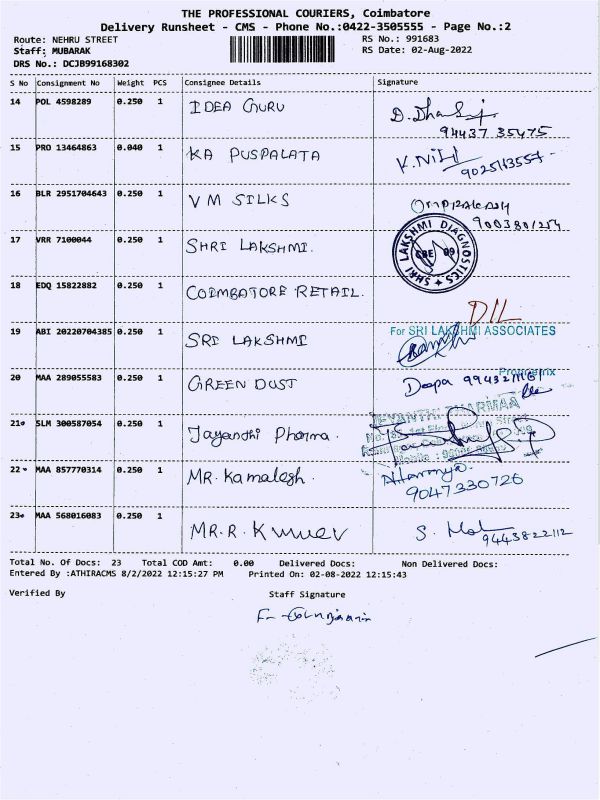 THE PROFESSIONAL COURIERS, Coimbatore
Delivery Runsheet - CMS - Phone No.:0422-3505555 - Page No.:2
Route: NEHRU STREET RS No.: 991683
Staff: MUBARAK RS Date: 02-Aug-2022
DRS No.: DCJB99168302
S No Consignment No Weight PCS Consignee Details Signature
14 POL 4598289 0.250 1 IDEA GURU
94437 35475
15 PRO 13464863 0.040 1 KA PUSPALATA
16 BLR 2951704643 0.250 1 V M SILKS
9003801254
17 VRR 7100044 0.250 1 SHRI LAKSHMI.
SHRI LAKSHMI DIAGNOSTICS
CBE
18 EDQ 15822882 0.250 1 COIMBATORE RETAIL.
19 ABI 20220704385 0.250 1 SRI LAKSHMI
For SRI LAKSHMI ASSOCIATES
20 MAA 289055583 0.250 1 GREEN DUST Deepa
21 SLM 300587054 0.250 1 Jayandhi Pharma.
22 MAA 857770314 0.250 1 MR. Kamalesh.
9047330726
23 MAA 568016083 0.250 1 MR. R. Kumar
9443822112
Total No. Of Docs: 23 Total COD Amt: 0.00 Delivered Docs: Non Delivered Docs:
Entered By :ATHIRACMS 8/2/2022 12:15:27 PM Printed On: 02-08-2022 12:15:43
Verified By Staff Signature